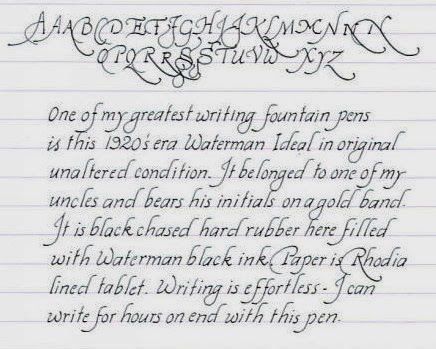 AAABCDEFJGHIJKLMNNNN
OPQRRSSTUVW XYZ
One of my greatest writing fountain pens
is this 1920's era Waterman Ideal in original
unaltered condition. It belonged to one of my
uncles and bears his initials on a gold band.
It is black chased hard rubber here filled
with Waterman black ink. Paper is Rhodia
lined tablet. Writing is effortless - I can
write for hours on end with this pen.